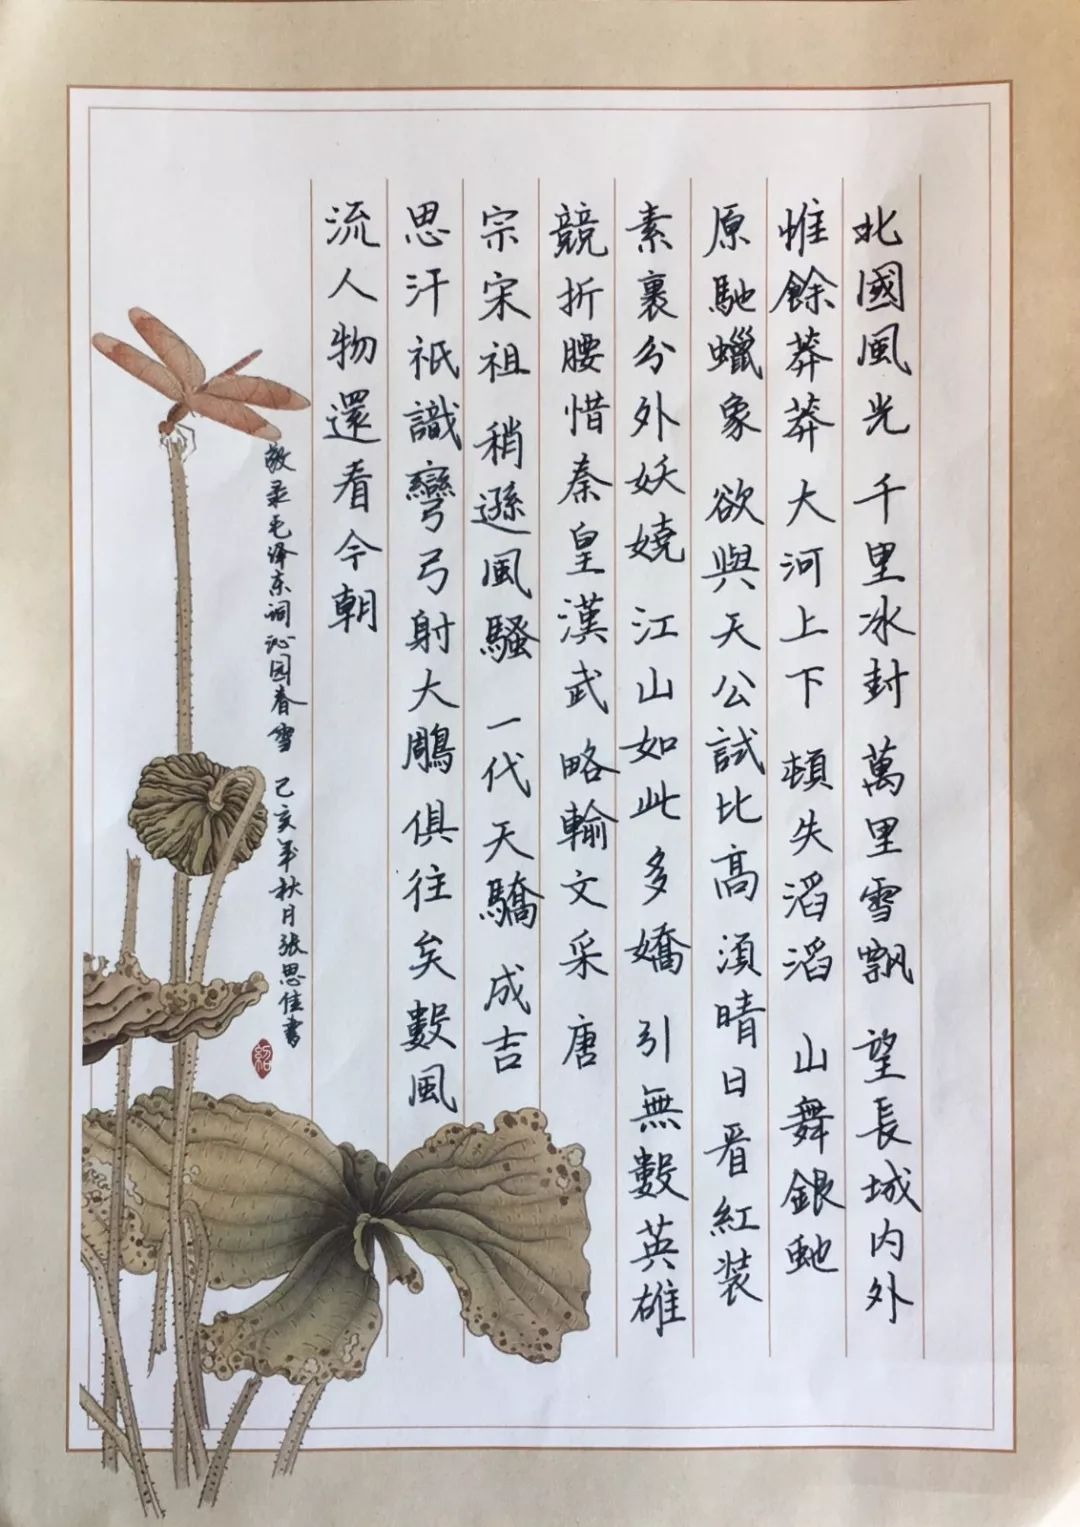 北國風光 千里冰封 萬里雪飄 望長城內外
惟餘莽莽 大河上下 頓失滔滔 山舞銀虵
原馳蠟象 欲與天公試比高 須晴日看紅装
素裹分外妖嬈 江山如此多嬌 引無數英雄
競折腰惜秦皇漢武 略輸文采 唐
宗宋祖 稍遜風騷 一代天驕 成吉
思汗祇識彎弓射大鵰俱往矣數風
流人物還看今朝
敬录毛泽东词沁园春雪 己亥年秋月张思佳書